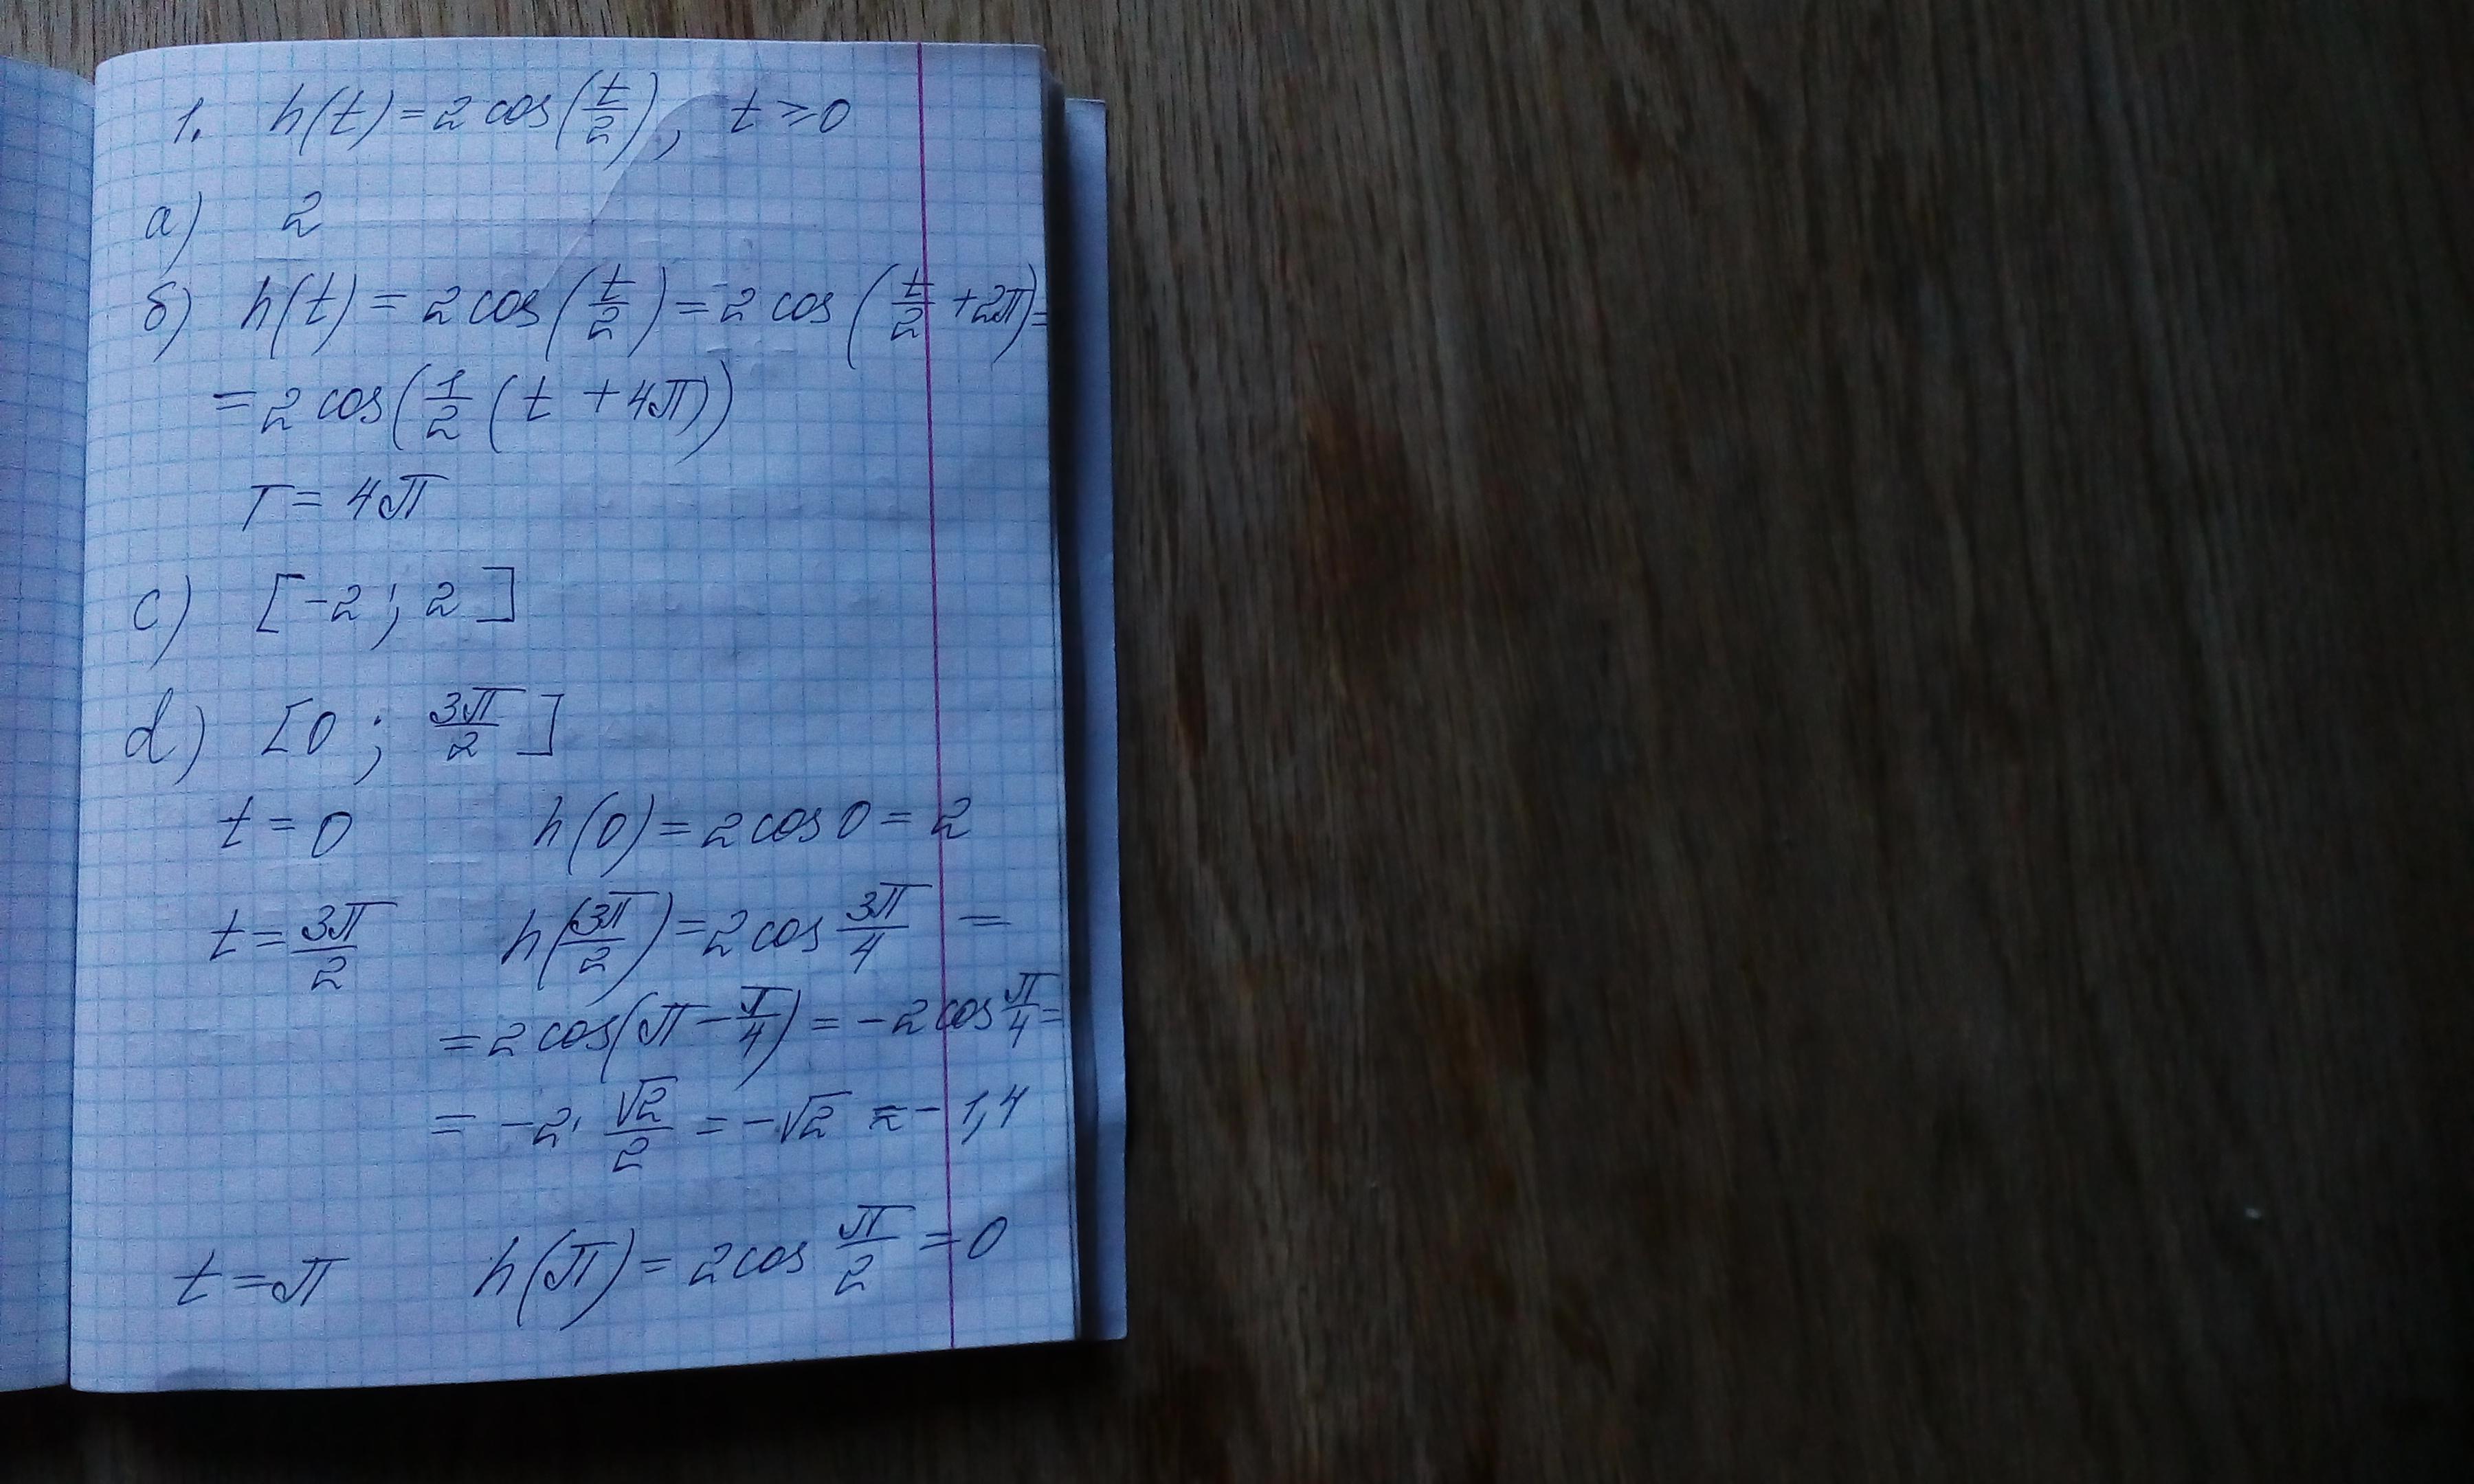 1. h(t) = 2 cos(t/2), t ≥ 0
a) 2
б) h(t) = 2 cos(t/2) = 2 cos(t/2 + 2π) =
= 2 cos(1/2 (t + 4π))
T = 4π
c) [-2; 2]
d) [0; 3π/2]
t = 0 h(0) = 2 cos 0 = 2
t = 3π/2 h(3π/2) = 2 cos 3π/4 =
= 2 cos(π - π/4) = -2 cos π/4 =
= -2 · √2/2 = -√2 ≈ -1,4
t = π h(π) = 2 cos π/2 = 0